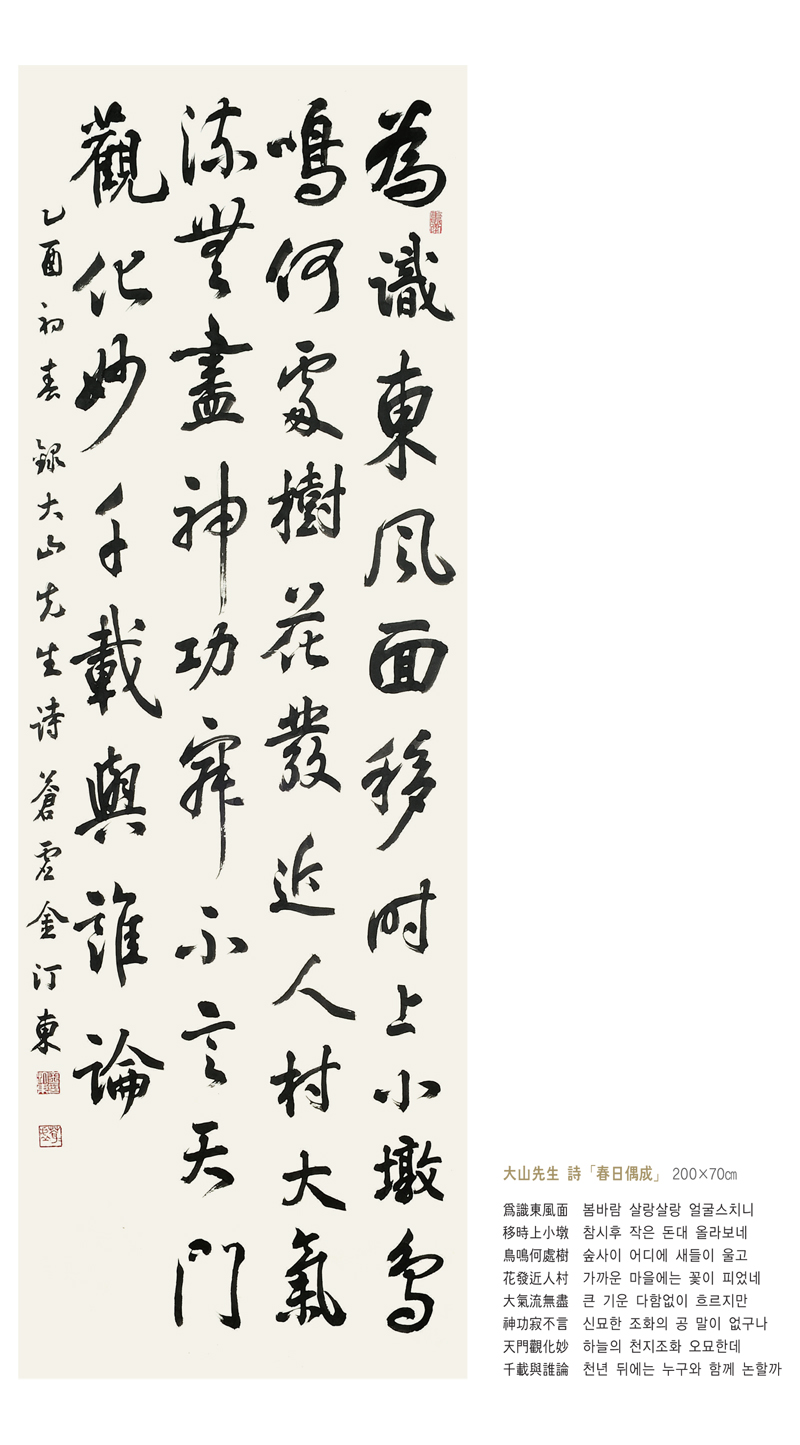 為識東風面移时上小墩鳥
鳴何處樹花發近人村大氣
流無盡神功寂不言天門
觀化妙千載與誰論
乙酉初春 錄大山先生詩 蒼虛金汀東
大山先生 詩「春日偶成」 200×70㎝
爲識東風面 봄바람 살랑살랑 얼굴스치니
移時上小墩 참시후 작은 돈대 올라보네
鳥鳴何處樹 숲사이 어디에 새들이 울고
花發近人村 가까운 마을에는 꽃이 피었네
大氣流無盡 큰 기운 다함없이 흐르지만
神功寂不言 신묘한 조화의 공 말이 없구나
天門觀化妙 하늘의 천지조화 오묘한데
千載與誰論 천년 뒤에는 누구와 함께 논할까